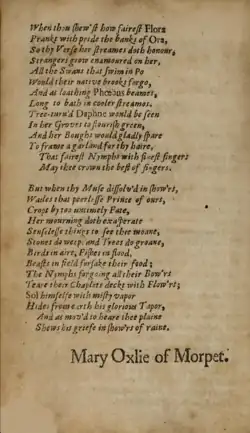 When thou shew'st how fairest Flora
Pranks with pride the banks of Ora,
So thy Verse her streames doth honour,
Strangers grow enamoured on her,
All the Swans that swim in Po
Would their native brooks forgo,
And as loathing Phœbus beames,
Long to bath in cooler streames.
Tree-turn'd Daphne would be seen
In her Groves to flourish green,
And her Boughs would gladly spare
To frame a garland for thy haire,
That fairest Nymphs with finest fingers
May thee crown the best of singers.
But when thy Muse dissolv'd in show'rs,
Wailes that peerlesse Prince of ours,
Crost by too untimely Fate,
Her mourning doth exasperate
Senselesse things to see thee moane,
Stones do weep, and Trees do groane,
Birds in aire, Fishes in flood,
Beasts in field forsake their food;
The Nymphs forgoing all their Bow'rs
Teare their Chaplets deckt with Flow'rs;
Sol himselfe with misty vapor
Hides from earth his glorious Tapor,
And as mov'd to heare thee plaine
Shews his griefe in show'rs of raine.
Mary Oxlie of Morpet.